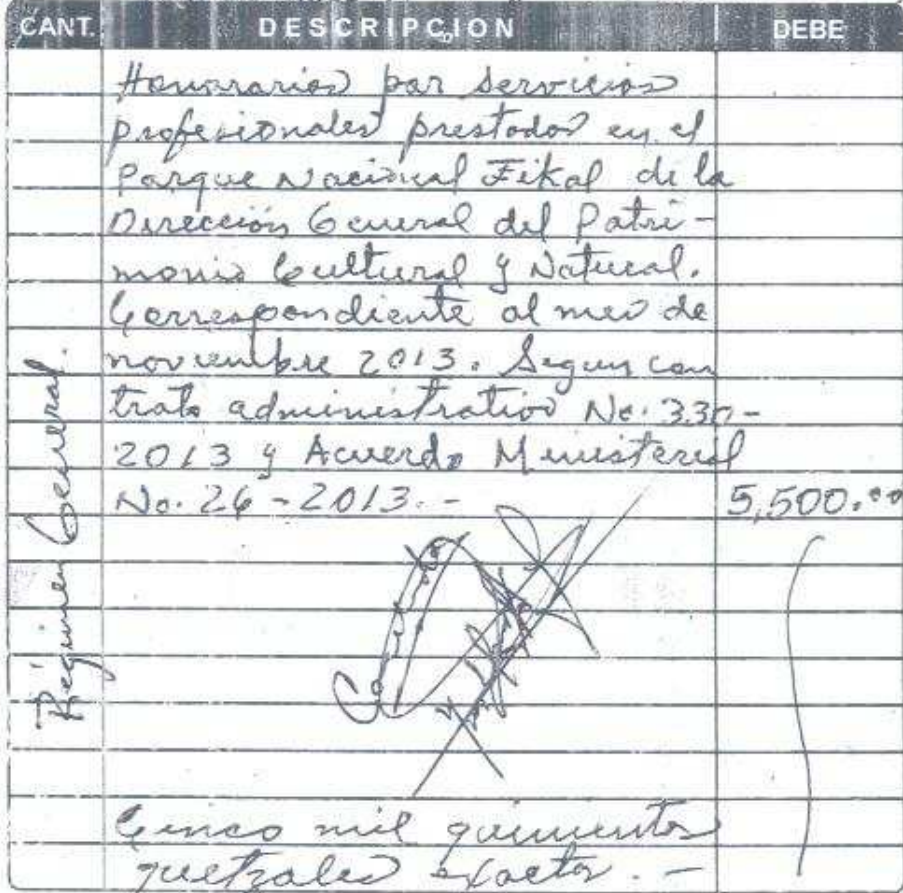 CANT. DESCRIPCION DEBE
Honorarios por servicios
profesionales prestados en el
Parque Nacional Tikal de la
Dirección General del Patri-
monio Cultural y Natural.
Correspondiente al mes de
noviembre 2013. Segun con
trato administrativo No. 330-
2013 y Acuerdo Ministerial
No. 26-2013.- 5,500.00
Régimen General.
Cancelado
Cinco mil quinientos
quetzales exactos.-